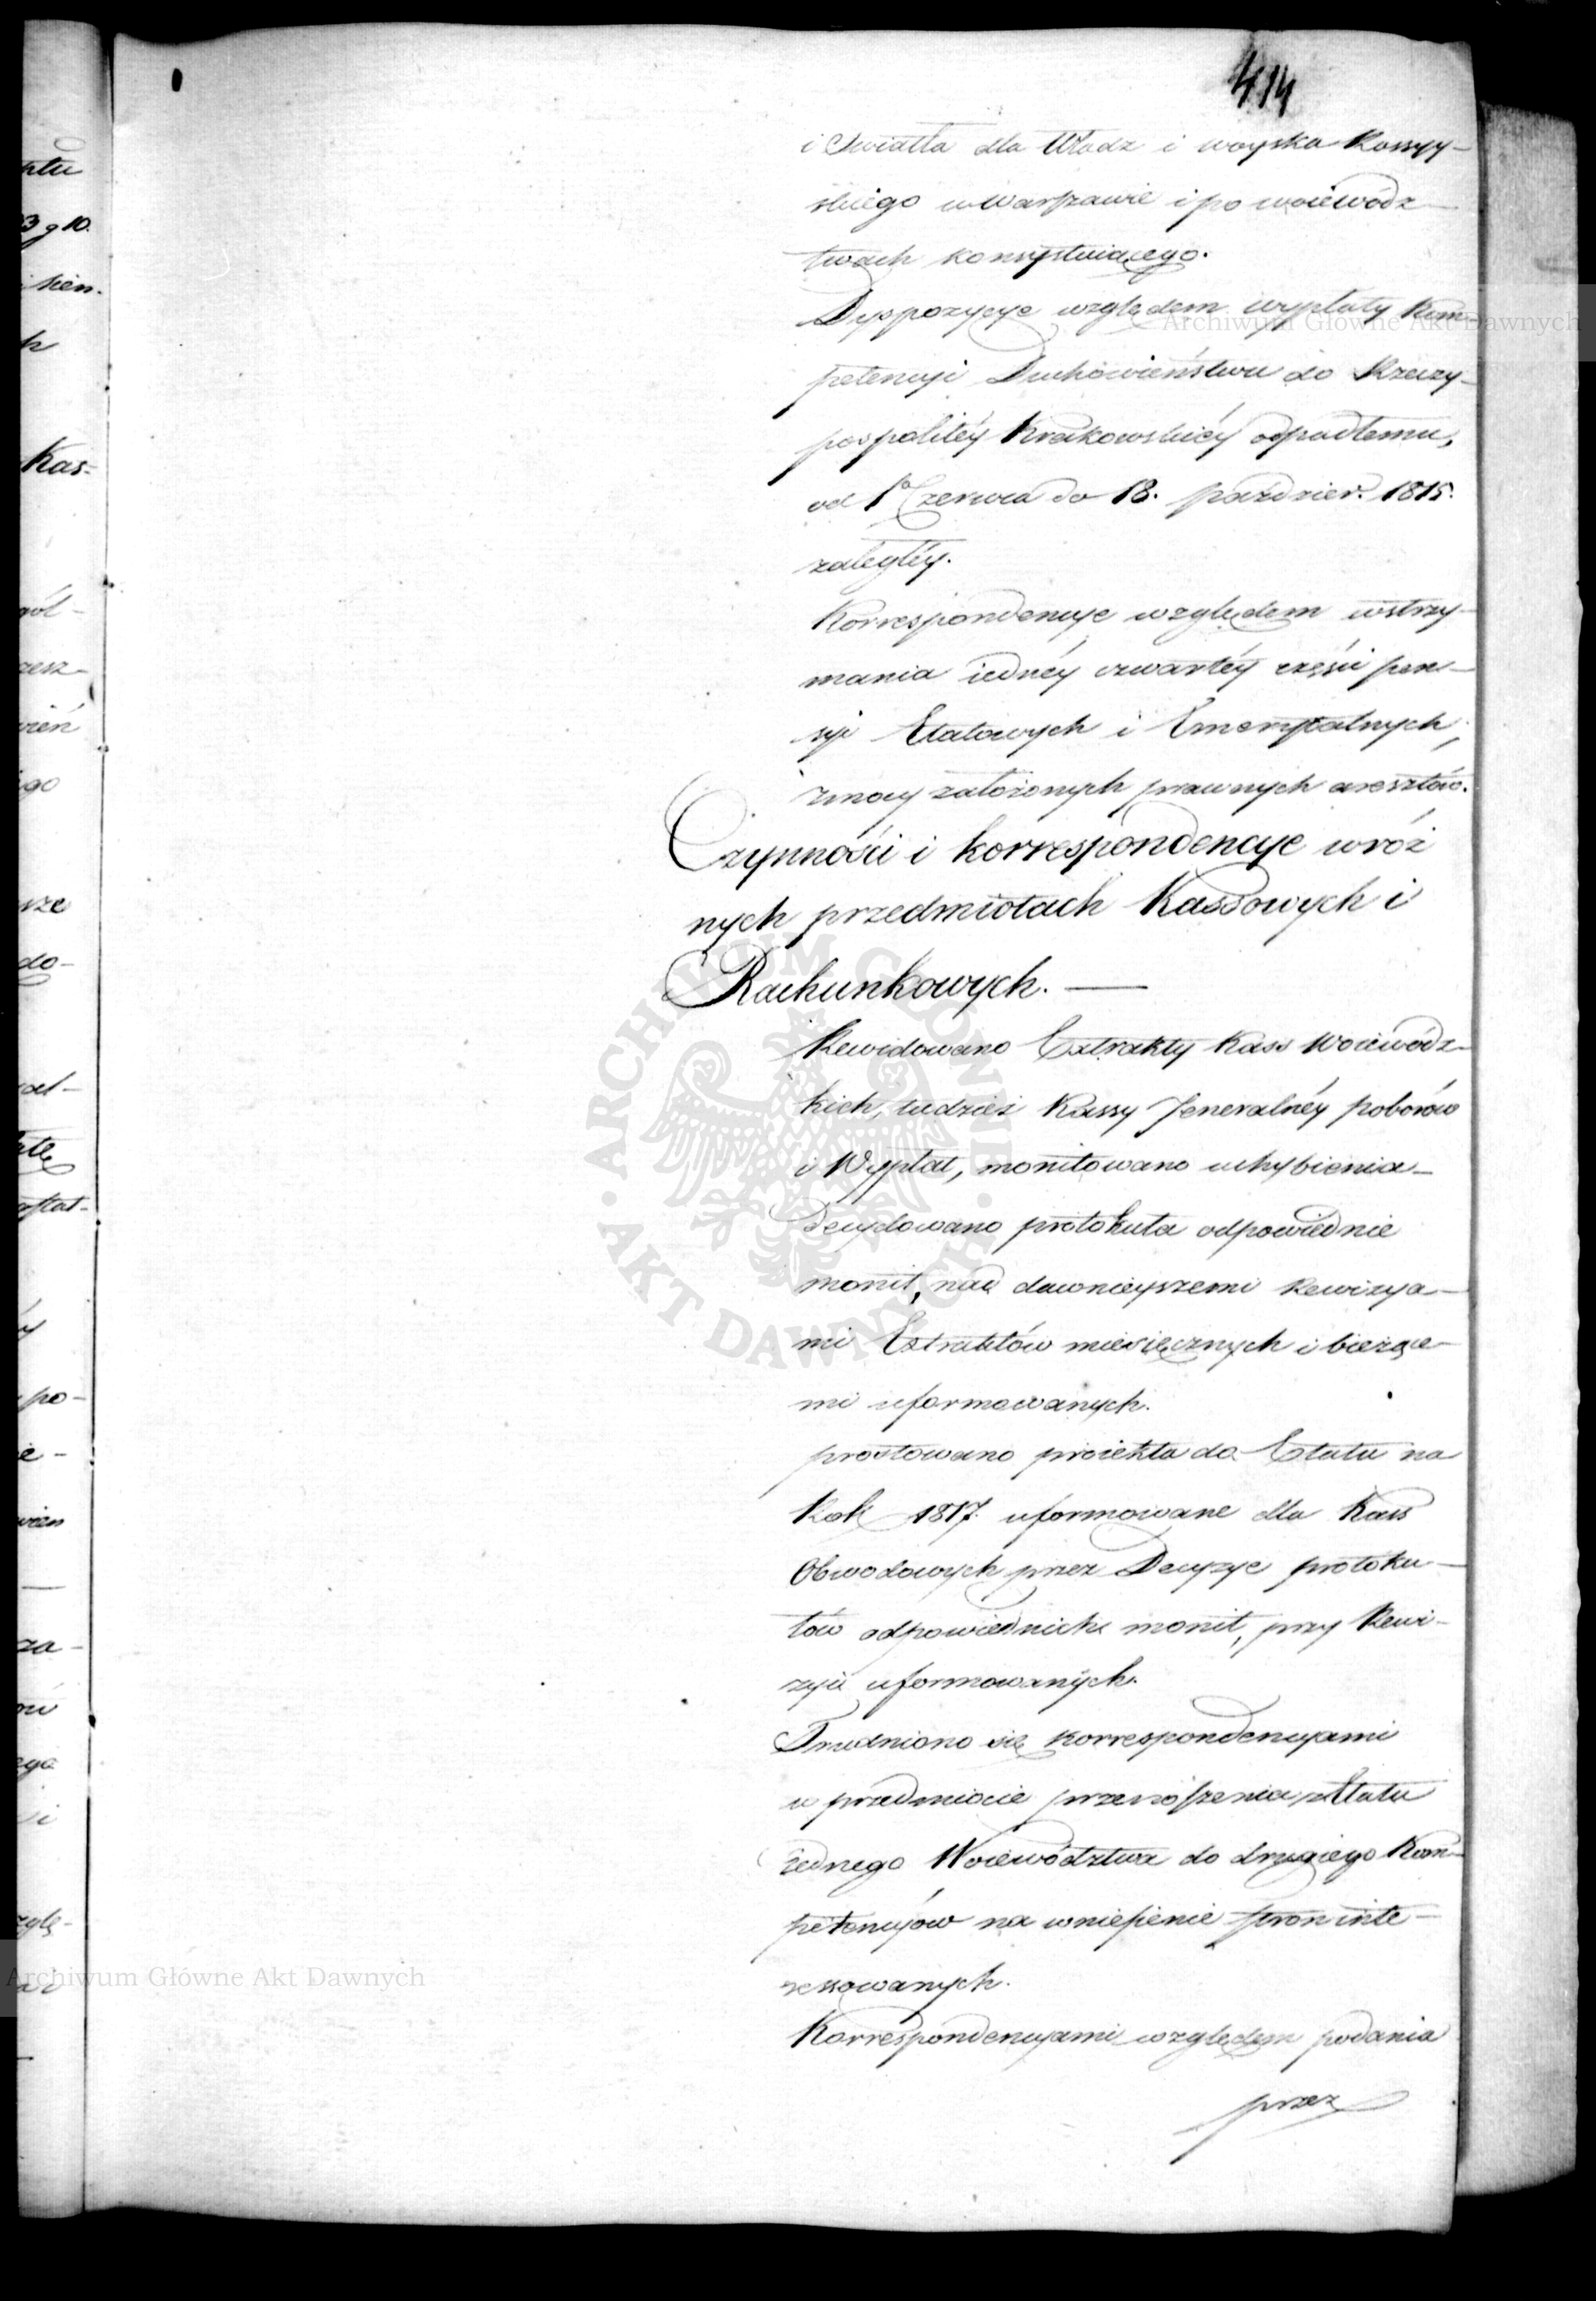 414
i Swiatła dla Władz i woyska Rossyy-
skiego w Warszawie i po woiewódz-
twach konsystuiącego.
Dyspozycye względem wypłaty Kom-
petencyi Duchowieństwu do Rzeczy-
pospolitéy Krakowskiéy odpadłemu,
od 1o Czerwca do 13. paździer. 1815.
zaległéy.
Korrespondencye względem wstrzy-
mania iednéy czwartéy części pen-
syi Etatowych i Emerytalnych,
z mocy założonych prawnych aresztów.
Czynności i korrespondencye w róż
nych przedmiotach Kassowych i
Rachunkowych. —
Rewidowano Extrakty Kass Woiewódz-
kich, tudzież Kassy Jeneralnéy poborów
i Wypłat, monitowano uchybienia-
Decydowano protokuła odpowiednie
monit, nad dawnieyszemi Rewizya-
mi Extraktów miesięcznych i bieżące-
mi uformowanych.
prostowano proiekta do Etatu na
Rok 1817. uformowane dla Kass
Obwodowych przez Decyzye protoku-
łów odpowiednich monit, przy Rewi-
zyi uformowanych.
Trudniono się korrespondencyami
w przedmiocie przenoszenia z Etatu
iednego Woiewództwa do drugiego Kom-
petencyów na wniesienie stron inte-
ressowanych.
Korrespondencyami względem podania
przez
ptu
Kas-
ból-
zesz-
wień
igo
do-
po-
ie-
za-
ego
i
zglę-
Archiwum Główne Akt Dawnych
Archiwum Główne Akt Dawnych
ARCHIWUM GŁÓWNE · AKT DAWNYCH ·